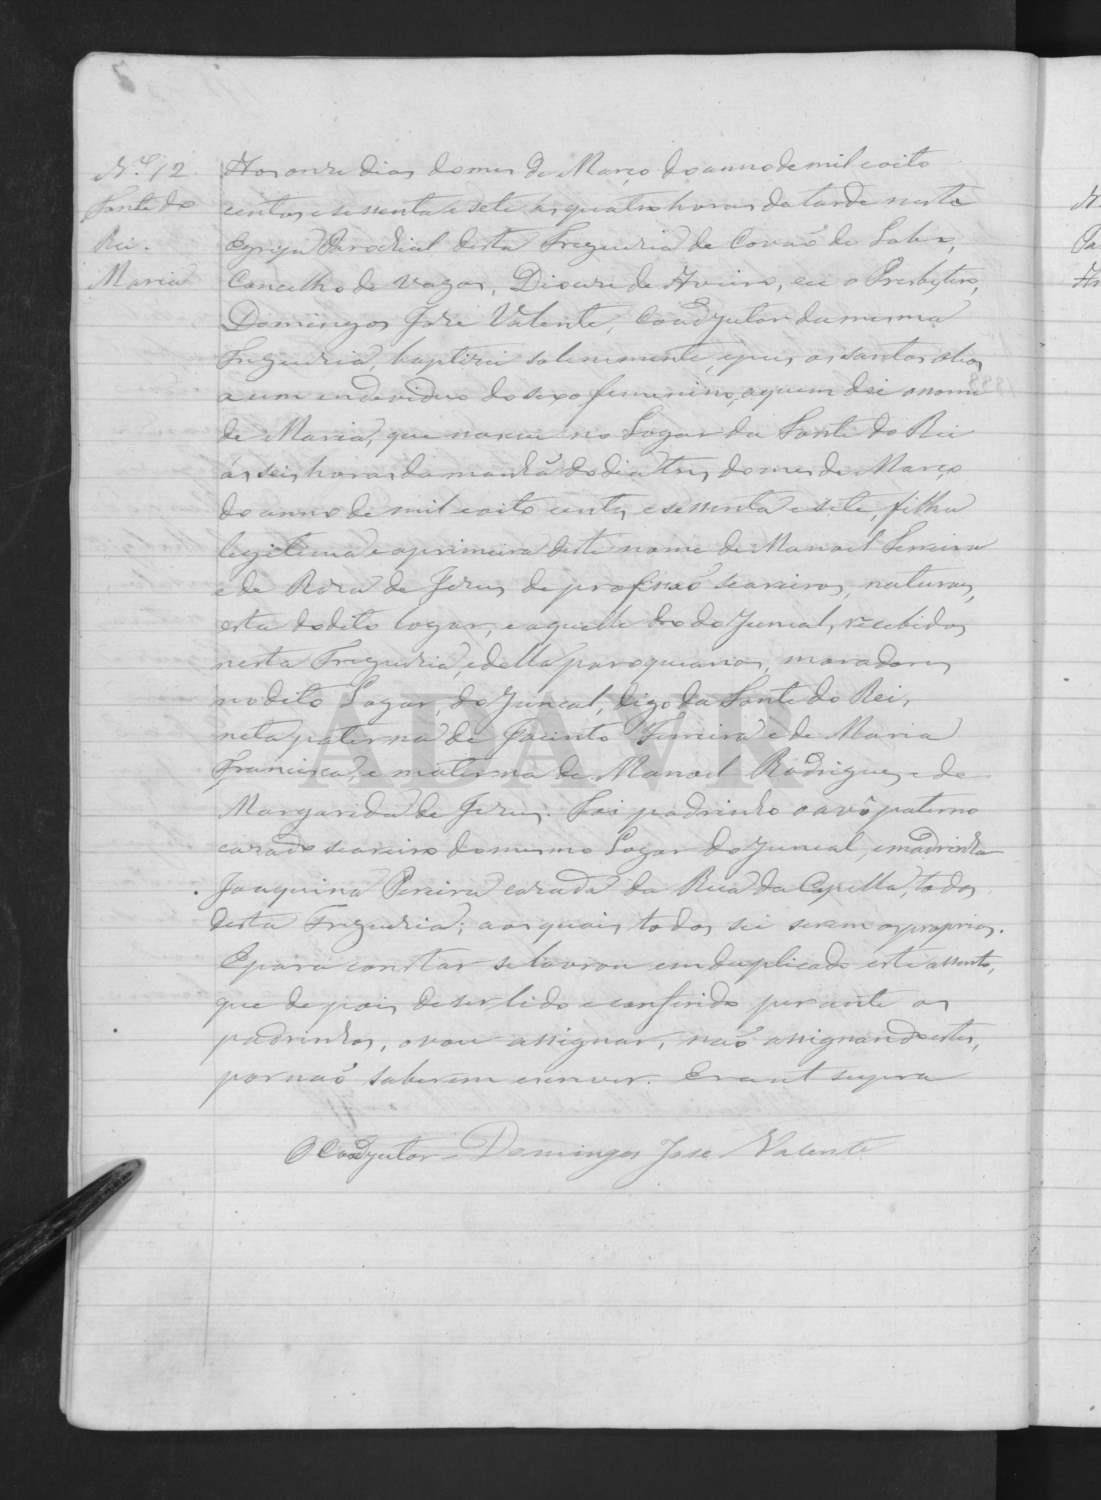 N.º 12
Fonte do
Rei.
Maria
Aos onze dias do mes de Março do anno de mil e oito
centos e sessenta e sete ás quatro horas da tarde nesta
Egreja Parochial desta Freguezia de Covaõ do Lobo,
Concelho de Vagos, Diocese de Aveiro, eu o Presbytero,
Domingos Jose Valente, Coadjutor da mesma
Freguezia, baptizei solemnemente, e puz os santos oleos
a um endeviduo do sexo femenino, a quem dei o nome
de Maria, que nasceu no Logar da Fonte do Rei
ás seis horas da manhã do dia tres do mes de Março
do anno de mil e oito centos e sessenta e sete, filha
legitima e a primeira deste nome de Manoel Ferreira
e de Rosa de Jezus de profissaõ seareiros, naturaes,
esta do dito logar, e aquelle do do Juncal, recebidos
nesta Freguezia, e della paroquianos, moradores
no dito Logar, do Juncal, digo da Fonte do Rei,
neta paterna de Jacinto Ferreira e de Maria
Francisca, e materna de Manoel Rodrigues e de
Margarida de Jezus. Foi padrinho o avô paterno
cazado seareiro do mesmo Logar do Juncal, e madrinha
Joaquina Pereira cazada da Rua da Capella, todos
desta Freguezia; aos quais todos sei serem os proprios.
E para constar se lavrou em duplicado este assento,
que depois de ser lido e conferido perante os
padrinhos, o vou assignar, naõ assignando estes,
por naõ saberem escrever. Era ut supra
O Coadjutor Domingos Jose Valente
ADAVR